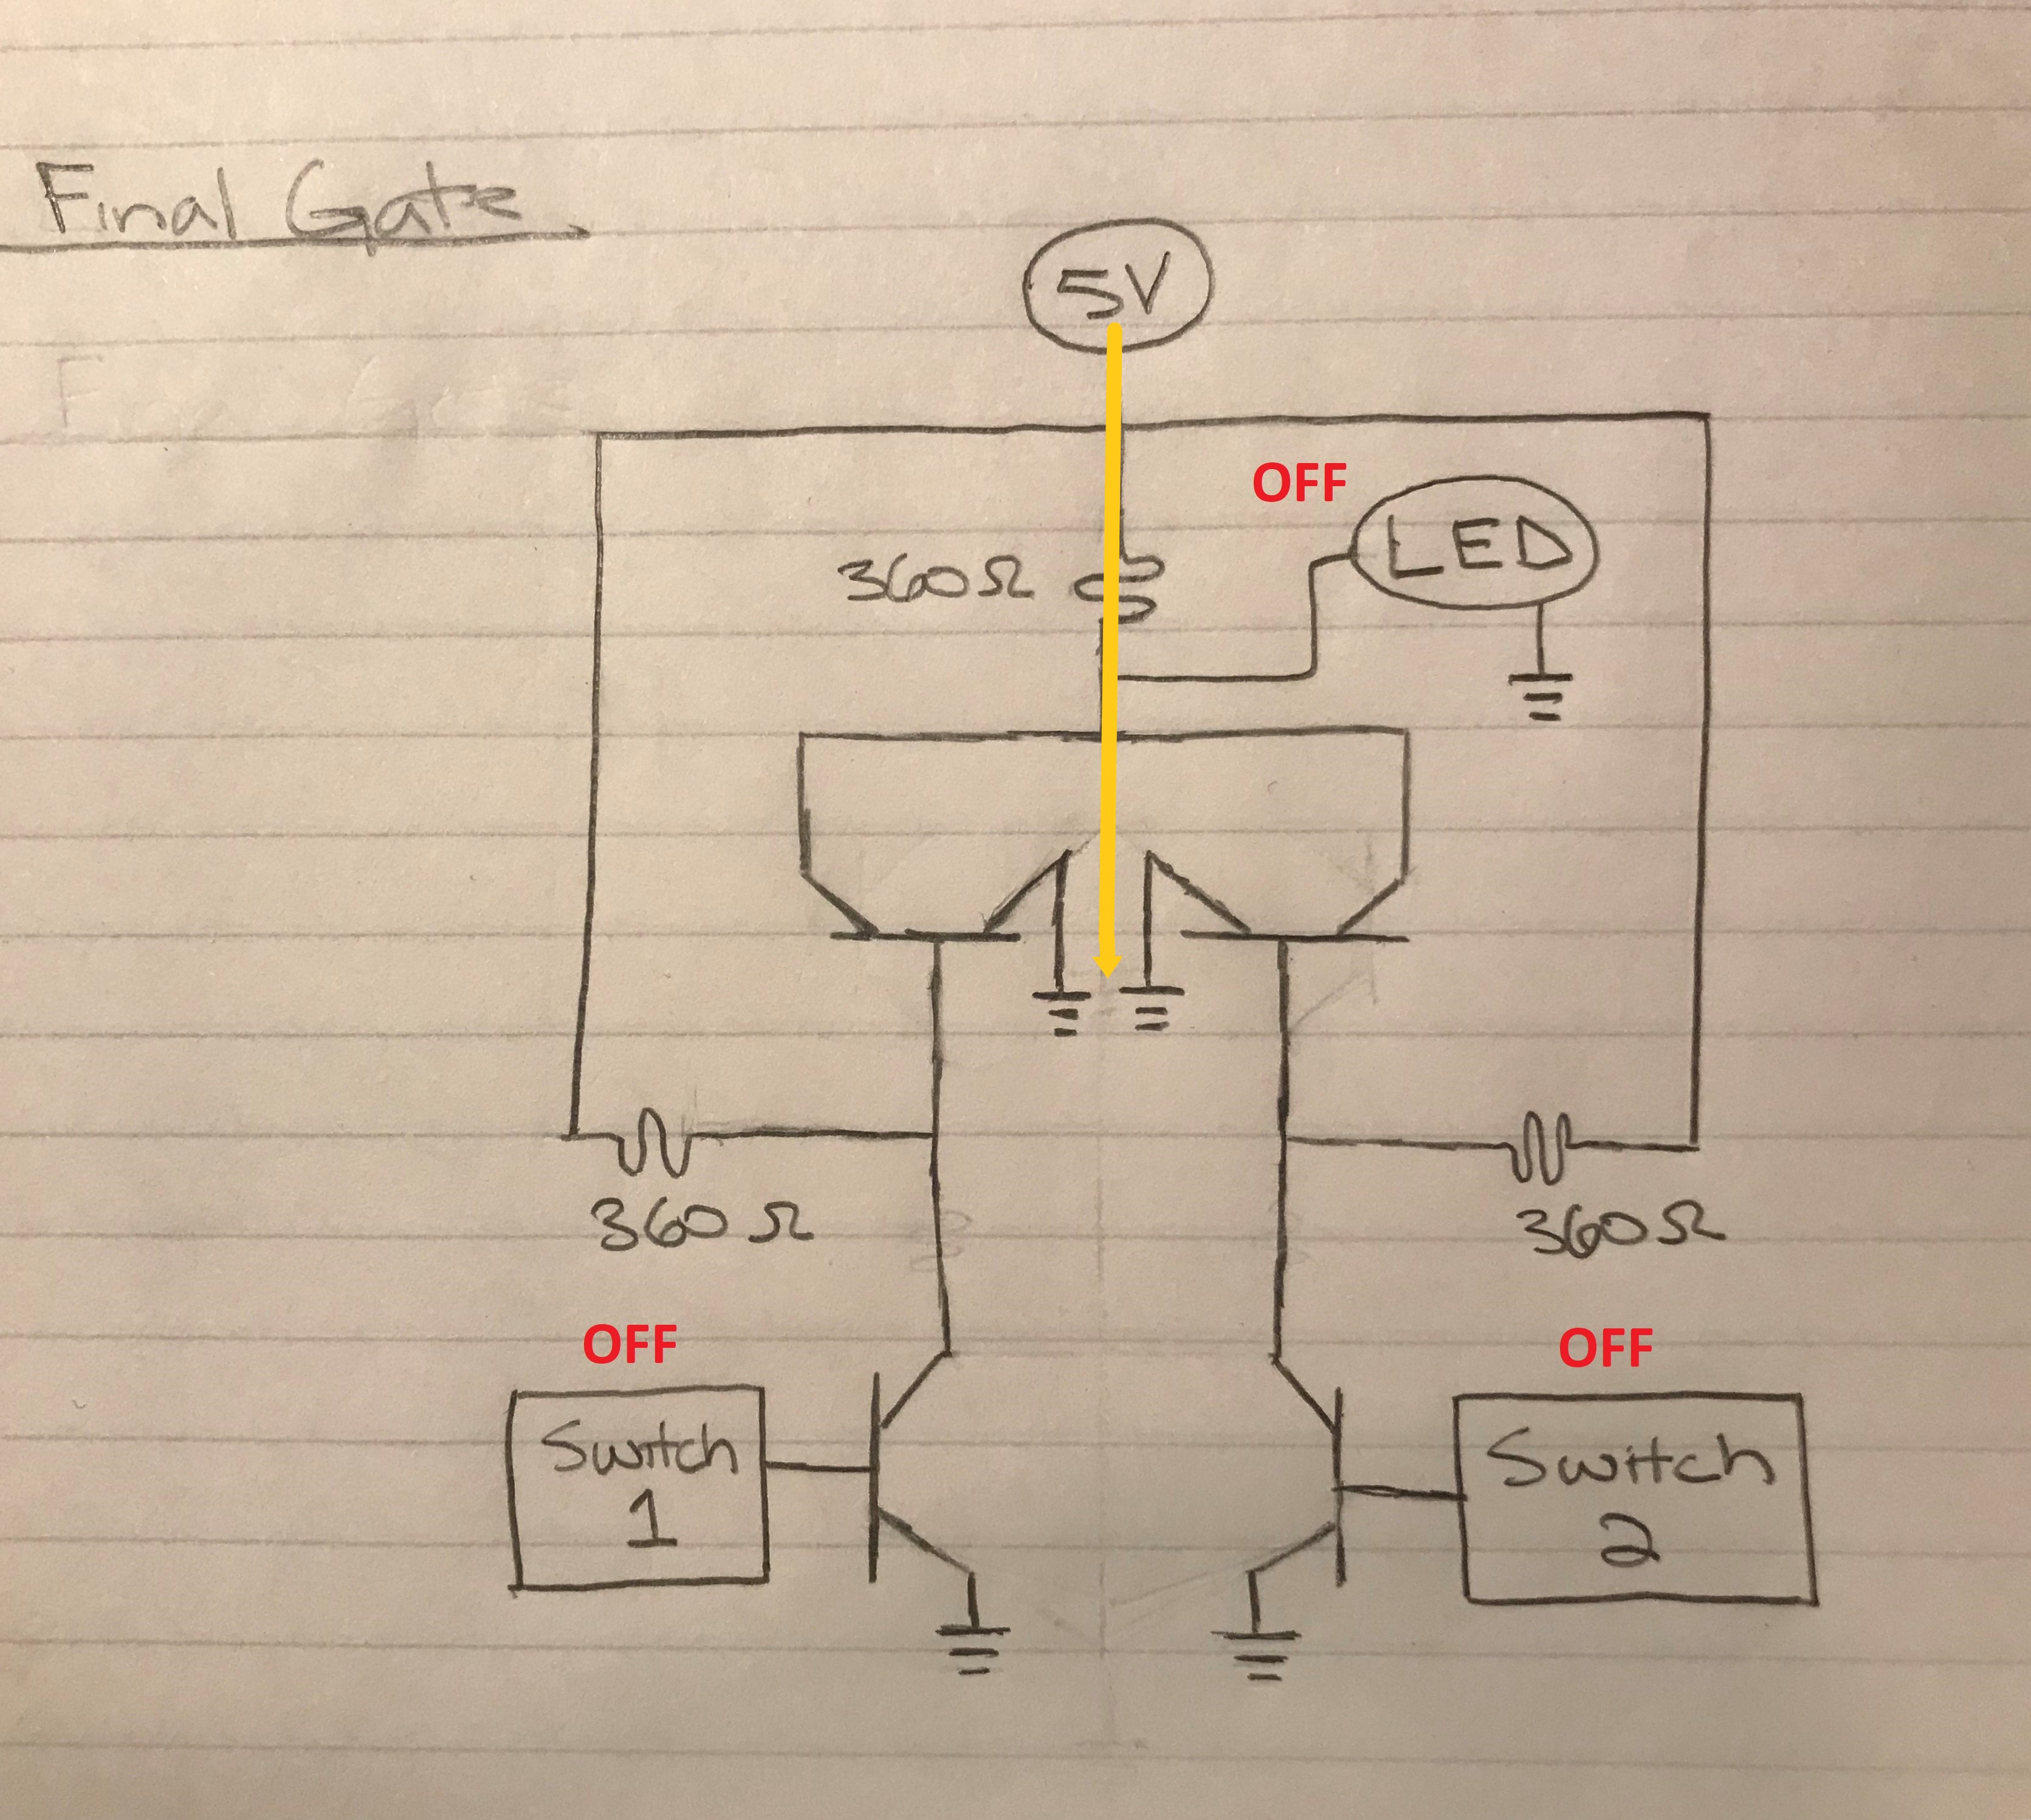 Final Gate
5V
OFF
LED
360Ω
360Ω
360Ω
OFF
OFF
Switch
1
Switch
2